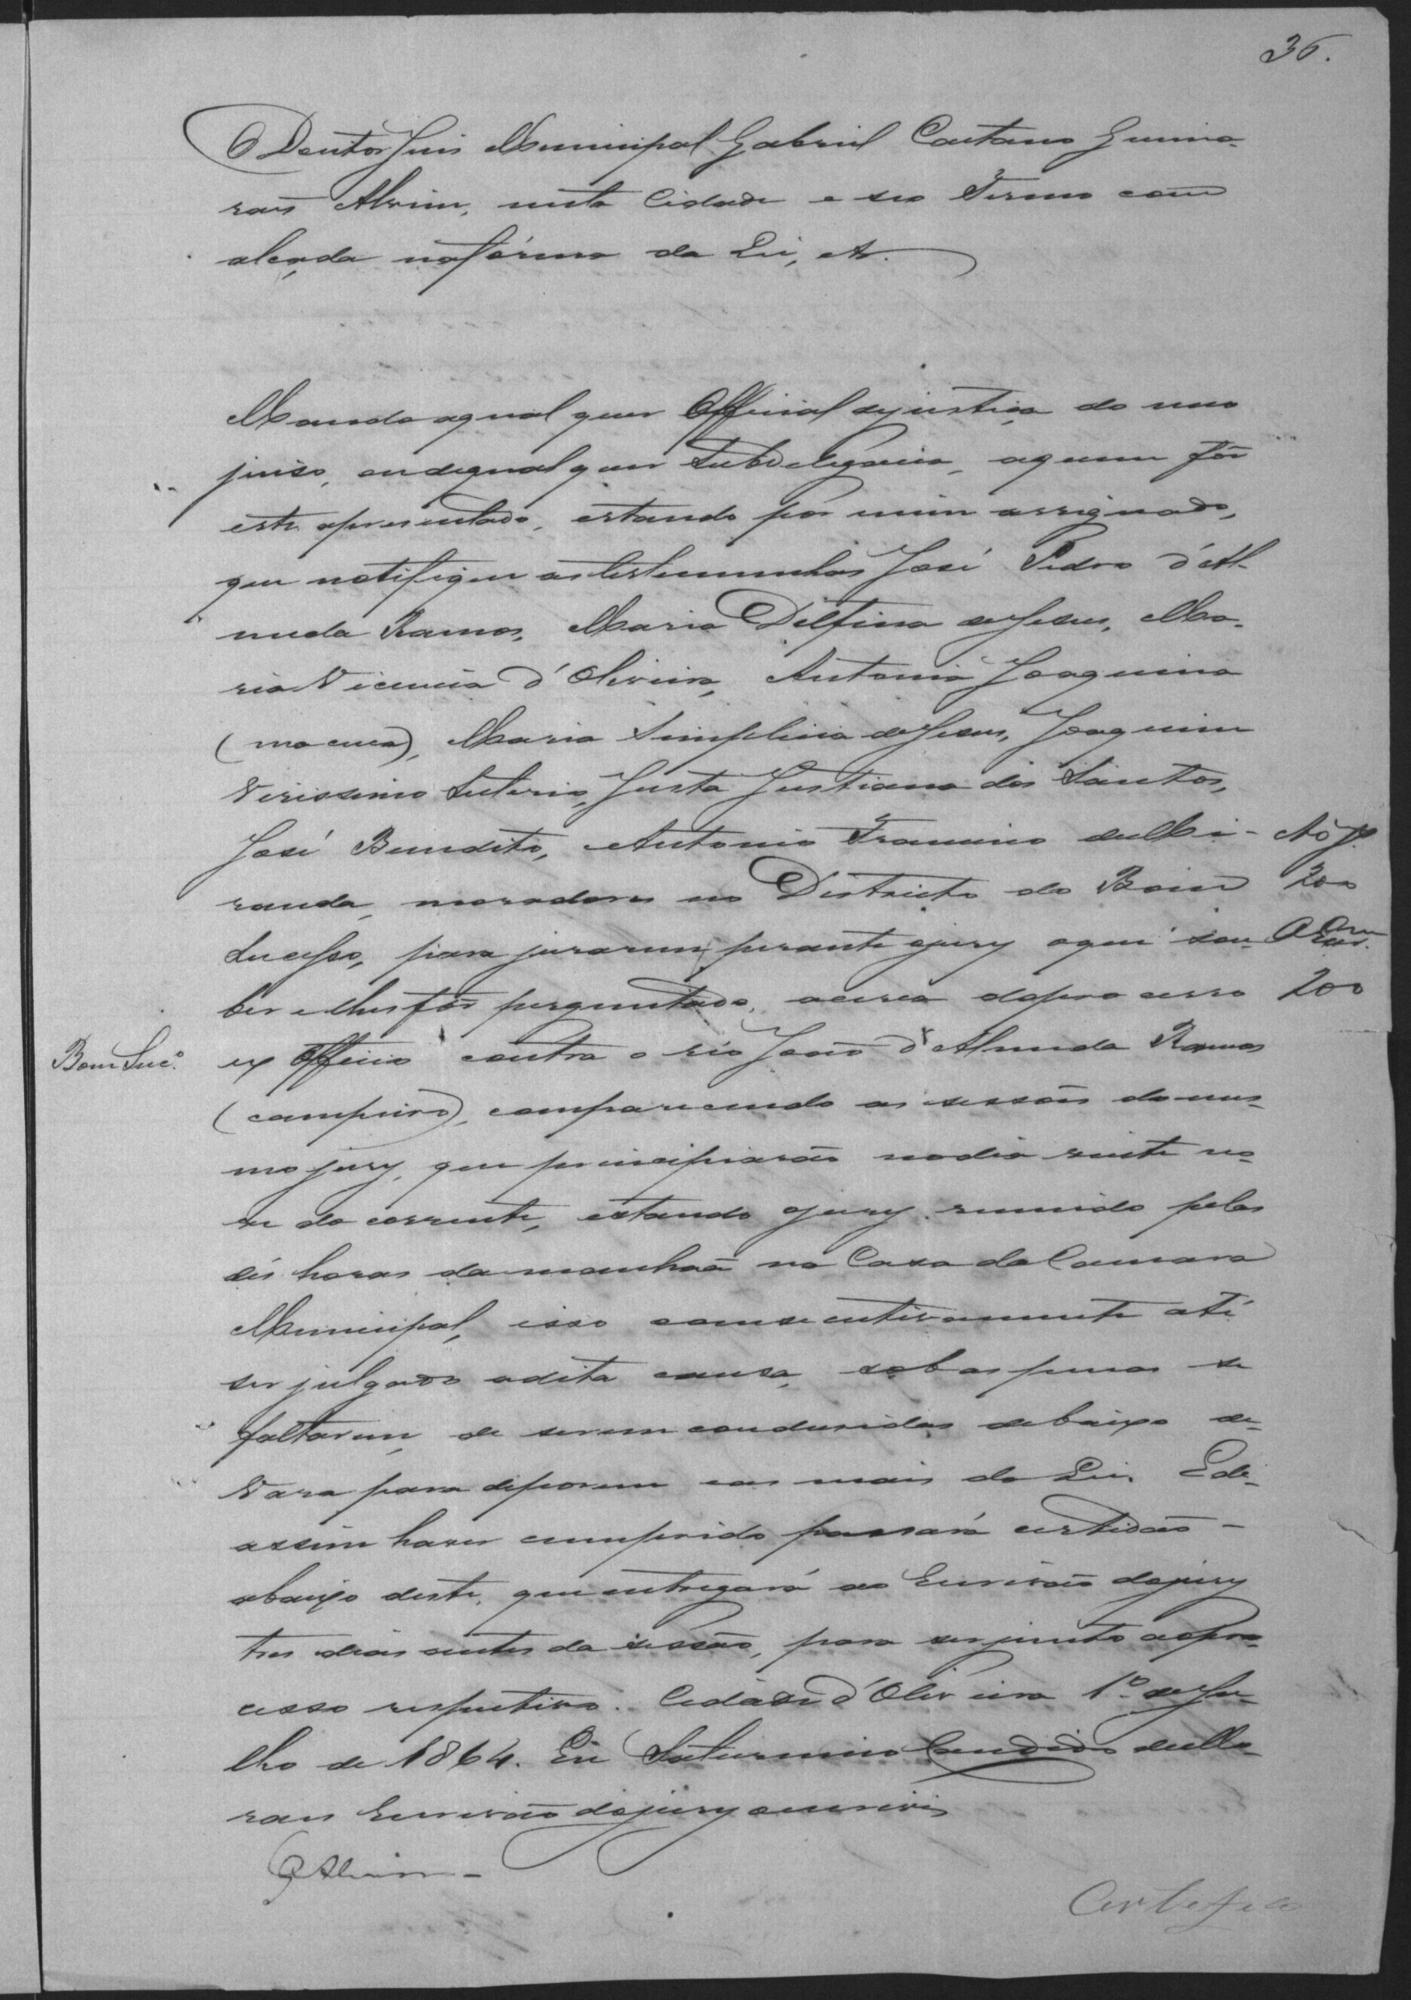 36.
O Doutor Juis Municipal Gabriel Caetano Guima-
raes Alvim, nesta Cidade e seo Termo com
alçada nafórma da Lei, etc.
Mando aqual quer Official dejustiça do meo
juiso, oudequal quer Subdelegacia, aquem fôr
este apresentado, estando por mim assignado,
que notifique astestemunhas José Pedro d'Al-
meida Ramos, Maria Delfina deJesus, Ma-
ria Vicencia d'Oliveira, Antonia Joaquina
(macuca), Maria Simplicia deJesus, Joaquim
Verissimo Juta Justiana dos Santos,
José Benedito, Antonio Francisco deMi-
randa, moradores no Districto do Bom
Sucesso, para jurarem perante ojury oque sou-
ber elhesfôr perguntado, acerca doprocesso
ex Officio contra o réo João d'Almeida Ramos
(campeiro), comparecendo as sessões domes-
mo jury, que principiarão nodia vinte no-
ve do corrente, estando ojury reunido pelas
dés horas damanhaã na Casa da Camara
Municipal, isso consecutivamente até
ser julgado adita causa, sob as penas se
faltarem, de serem condusidas debaixo de
Vara para deporem eas mais da Lei. Ede
assim haver cumprido passará certidão
abaixo deste, que entregará ao Escrivão dojury
tres dias antes da sessão, para ser junto aopro-
cesso respectivo. Cidade d'Oliveira 1º deJu-
lho de 1864. Eu Saturnino Candido deMo-
raes Escrivão dojury oescrevi
GAlvim
Bom Suc.º
200
200
Certefico